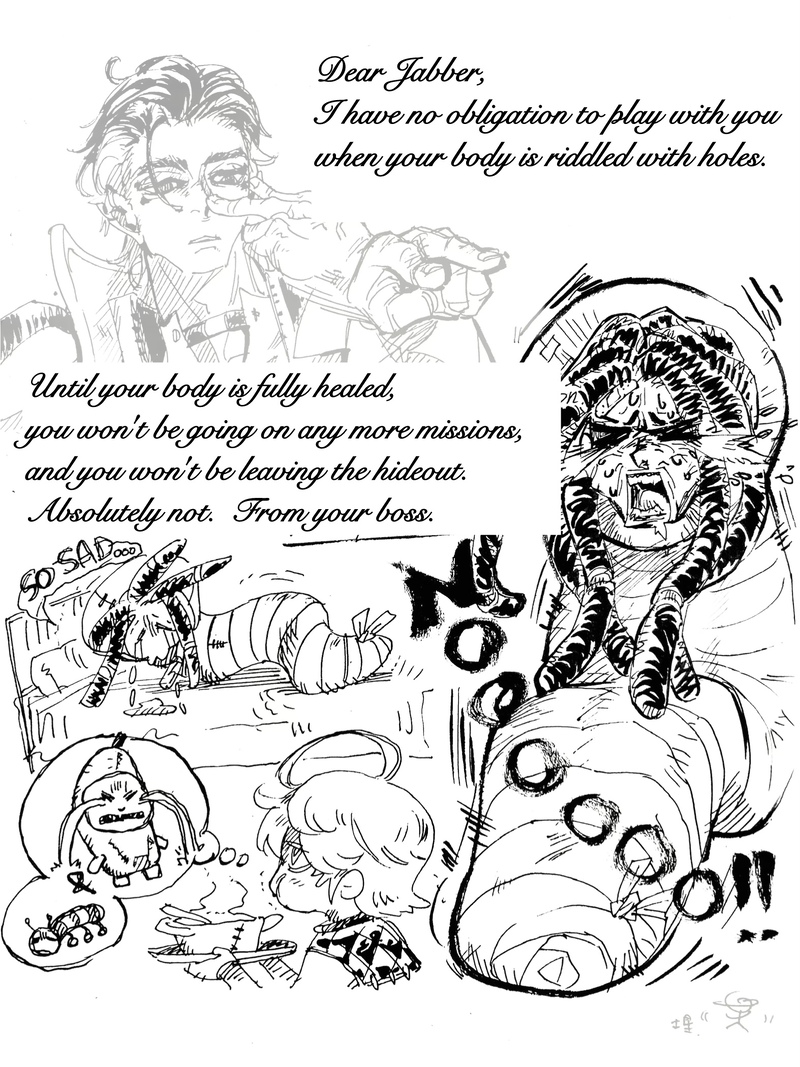 Dear Jabber,
I have no obligation to play with you
when your body is riddled with holes.
Until your body is fully healed,
you won't be going on any more missions,
and you won't be leaving the hideout.
Absolutely not. From your boss.
SO SAD...
NOOOOOOO!!
&